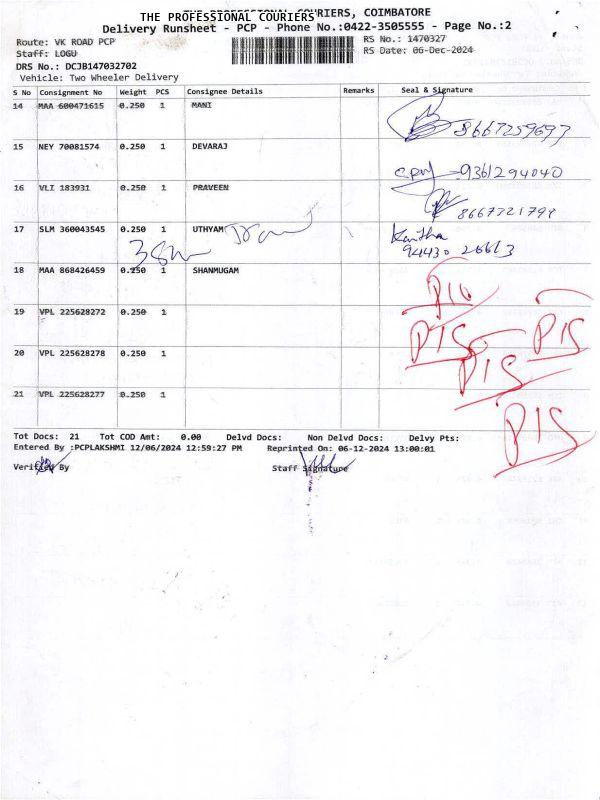 THE PROFESSIONAL COURIERS, COIMBATORE
THE PROFESSIONAL COURIERS
Delivery Runsheet - PCP - Phone No.:0422-3505555 - Page No.:2
Route: VK ROAD PCP RS No.: 1470327
Staff: LOGU RS Date: 06-Dec-2024
DRS No.: DCJB147032702
Vehicle: Two Wheeler Delivery
S No Consignment No Weight PCS Consignee Details Remarks Seal & Signature
14 MAA 600471615 0.250 1 MANI 8667259697
15 NEY 70081574 0.250 1 DEVARAJ 9361294040
16 VLI 183931 0.250 1 PRAVEEN 8667721797
17 SLM 360043545 0.250 1 UTHYAM Kavitha
94430 26613
18 MAA 868426459 0.250 1 SHANMUGAM
19 VPL 225628272 0.250 1 PIS
20 VPL 225628278 0.250 1 PIS PIS
21 VPL 225628277 0.250 1 PIS
Tot Docs: 21 Tot COD Amt: 0.00 Delvd Docs: Non Delvd Docs: Delvy Pts:
Entered By :PCPLAKSHMI 12/06/2024 12:59:27 PM Reprinted On: 06-12-2024 13:00:01
Verified By Staff Signature